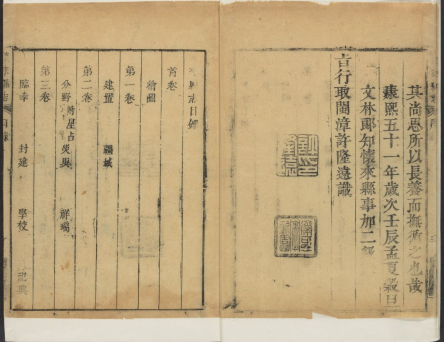 其尚思所以長養而撫循之也哉
康熙五十一年歲次壬辰孟夏穀旦
文林郎知懷來縣事加二級
行取閩漳許隆遠識
目錄
首卷
繪圖
第一卷
建置 疆域
第二卷
分野 附星占災異 祥瑞
第三卷
臨幸 封建 學校